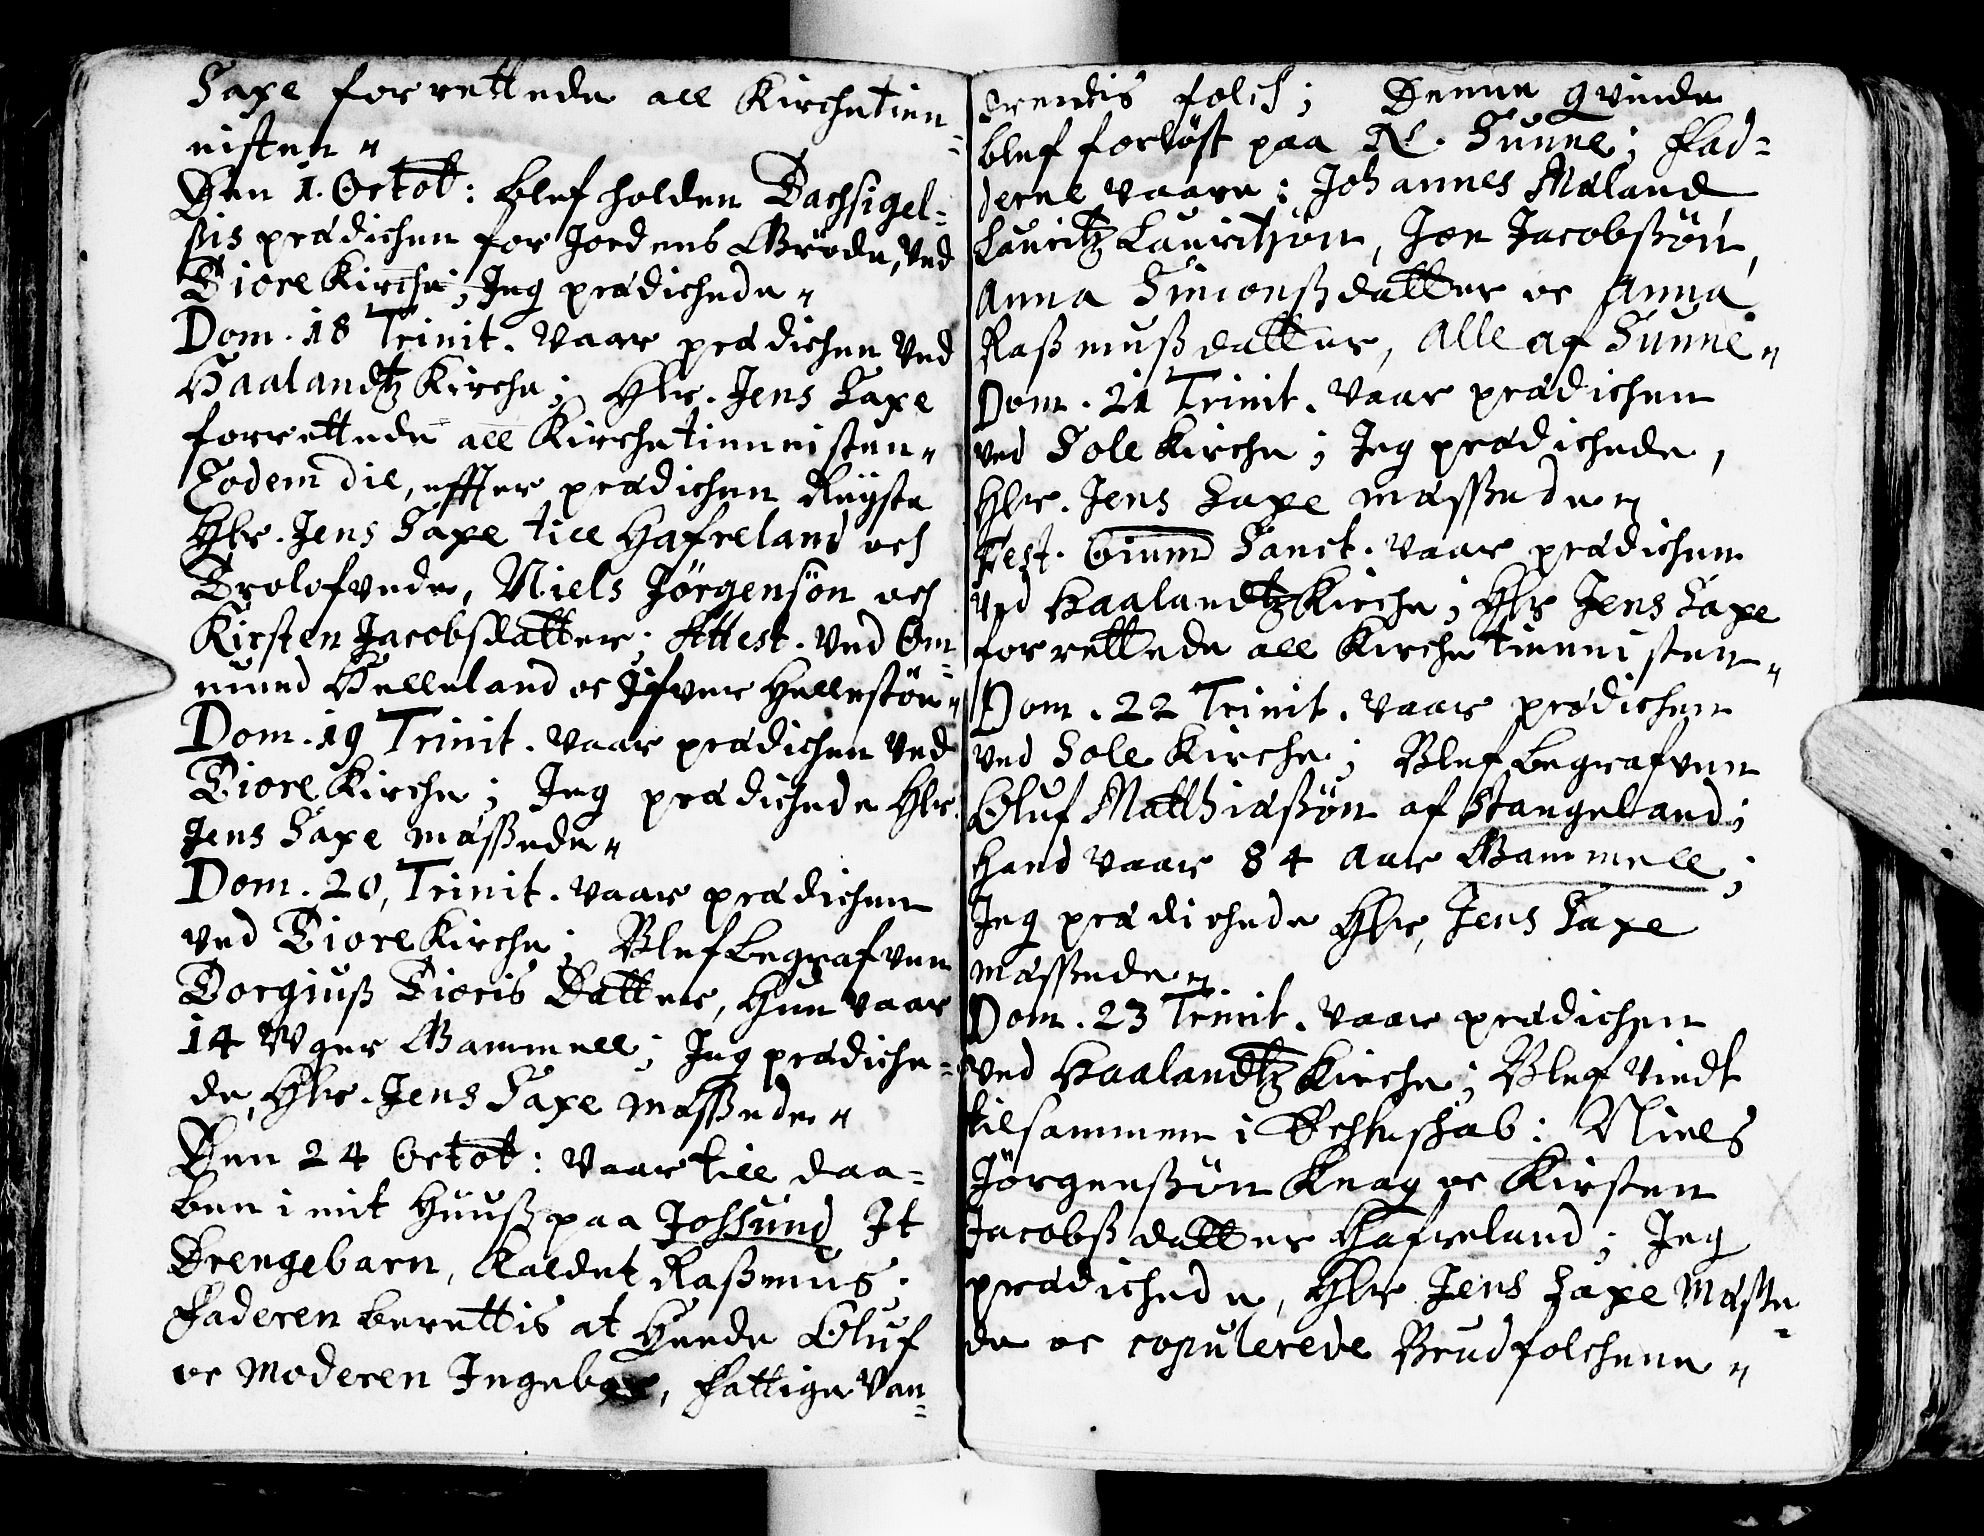 Saxe forrettede all Kirchetien-
nisten"
Den 1. Octob: blef holden Tachsigel-
ßis prædichen for Jordens Grøde, ved
Tiore Kirche; Jeg prædichede"
Dom. 18 Trinit. vaar prædichen ved
Haalandtz Kirche; Hhr. Jens Saxe
forrettede all Kirchetiennisten"
Eodem die, effter prædichen Reigste
Hhr. Jens Saxe till Hafreland och
Trolofvede, Niels Jörgensön och
Kirsten Jacobsdatter; Attest. ved Om-
mund Helleland oc Ifver Hellestöe"
Dom. 19 Trinit. vaar prædichen ved
Tiore Kirche; Jeg prædichede Hhr.
Jens Saxe mæssede"
Dom. 20, Trinit. vaar prædichen
ved Tiore Kirche; Blef begrafven
Torgiuß Tioris Datter, Hun vaar
14 Uger Gammell; Jeg prædiche-
de, Hhr. Jens Saxe mæssede"
Den 24 Octob: vaar till daa-
ben i mit Huuß paa Joßund It
Drengebarn, kaldet Raßmus;
Faderen berettis at Heede Oluf
oc Moderen Ingebor, fattige van-
drendis folch; Denne qvinde
blef forlöst paa N. Sunne; Fad-
derne vaare: Johannes Mæland
Lauritz Lauritzön, Jon Jacobßön,
Anna Simonßdatter oc Anna
Raßmußdatter, alle af Sunne"
Dom. 21 Trinit. vaar prædichen
ved Sole Kirche; Jeg prædichede,
Hhr. Jens Saxe mæssede"
Fest. Oium Sanct. vaar prædichen
ved Haalandtz Kirche; Hhr Jens Saxe
forrettede all Kirchetiennisten"
Dom. 22 Trinit. vaar prædichen
ved Sole Kirche; Blef begrafven
Oluf Matthiaßön af Stangeland;
Hand vaar 84 Aar Gammell;
Jeg prædichede Hhr, Jens Saxe
mæssede"
Dom. 23 Trinit. vaar prædichen
ved Haalandtz Kirche; Blef viedt
tilsammen i Echteskab: Niels
Jörgenßön Knag oc Kirsten
Jacobßdatter Hafreland; Jeg
prædichede, Hhr Jens Saxe mæsse-
de oc copulerede Brudfolchene"